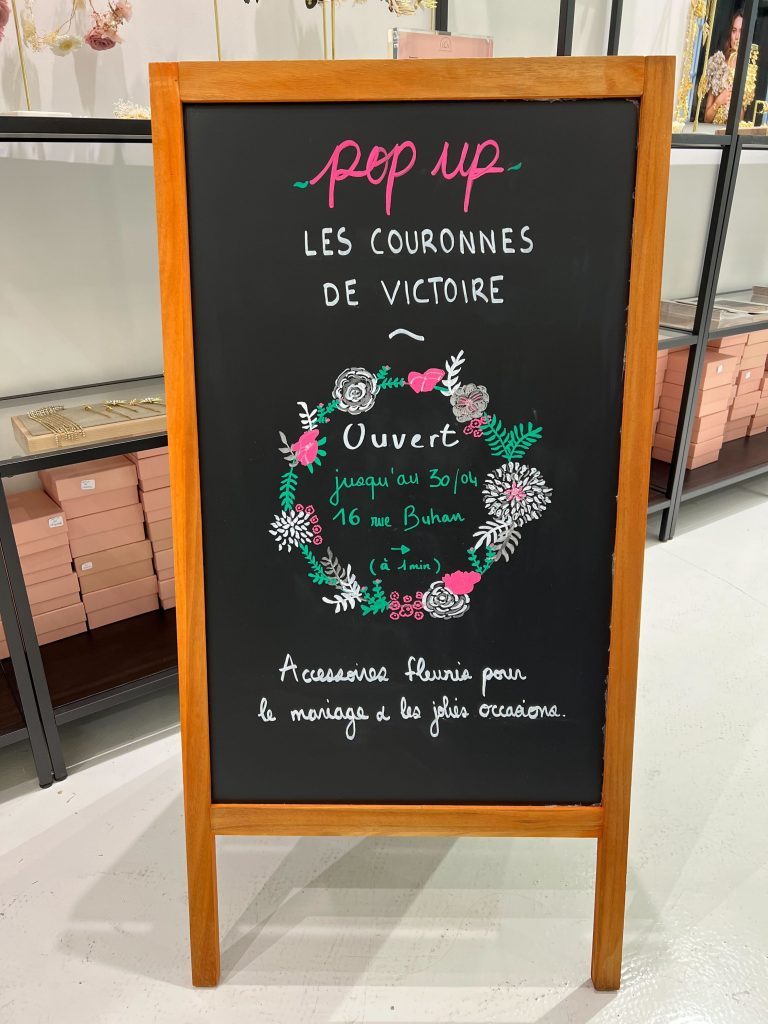 POP UP
LES COURONNES
DE VICTOIRE
Ouvert
jusqu'au 30/04
16 rue Buhan
(à 1 min)
Accessoires fleuris pour
le mariage & les jolies occasions.